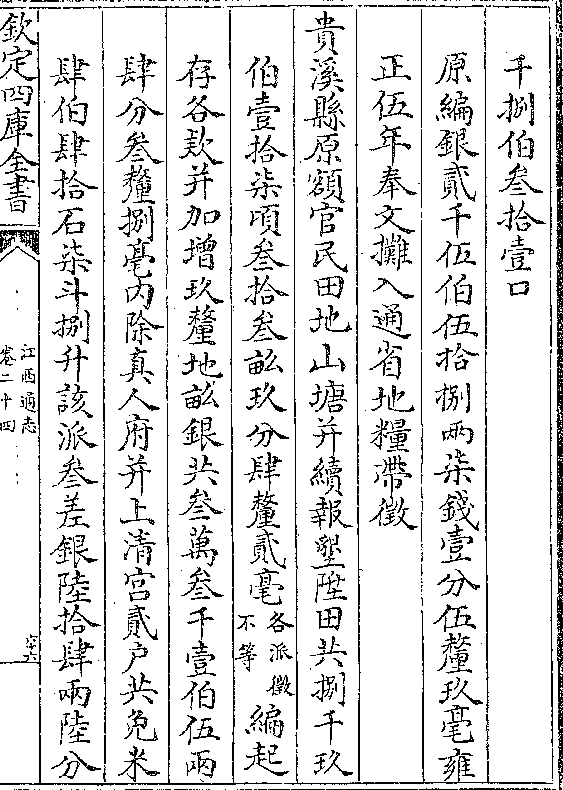 千捌伯叁拾壹口
原編銀貳千伍伯伍拾捌兩柒錢壹分伍釐玖毫雍
正伍年奉文攤入通省地糧帶徵
貴溪縣原額官民田地山塘并續報墾陞田共捌千玖
伯壹拾柒頃叁拾叁畝玖分肆釐貳毫各派徵不等編起
存各款并加增玖釐地畝銀共叁萬叁千壹伯伍兩
肆分叁釐捌毫内除真人府并上清宫貳户共免米
肆伯肆拾石柒斗捌升該派叁差銀陸拾肆兩陸分
欽定四庫全書
江西通志
卷二十四